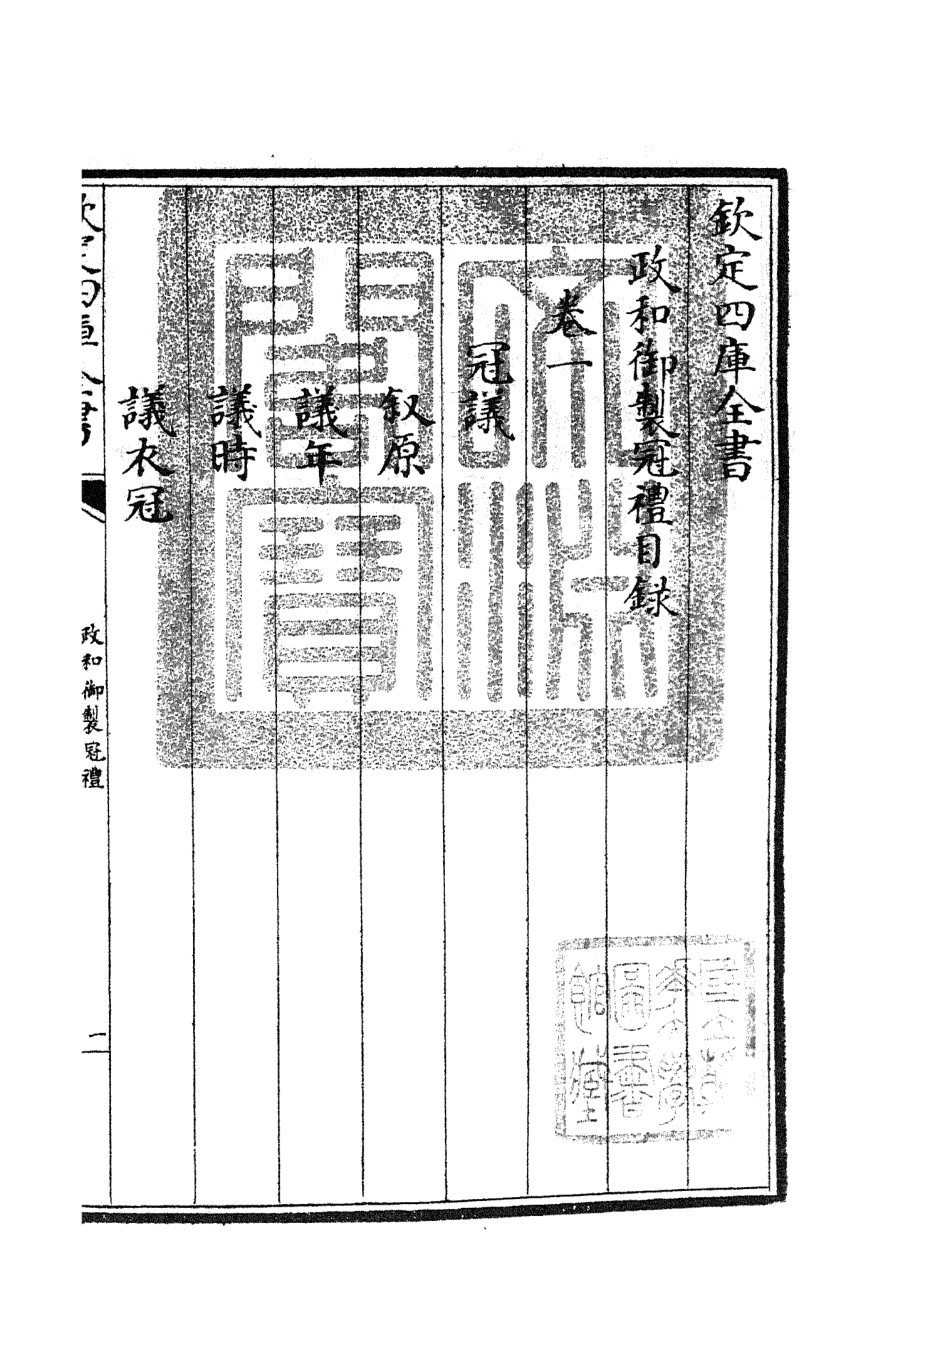 欽定四庫全書
政和御製冠禮目録
卷一
冠議
叙原
議年
議時
議衣冠
欽定四庫全書
政和御製冠禮
一
文淵閣寶